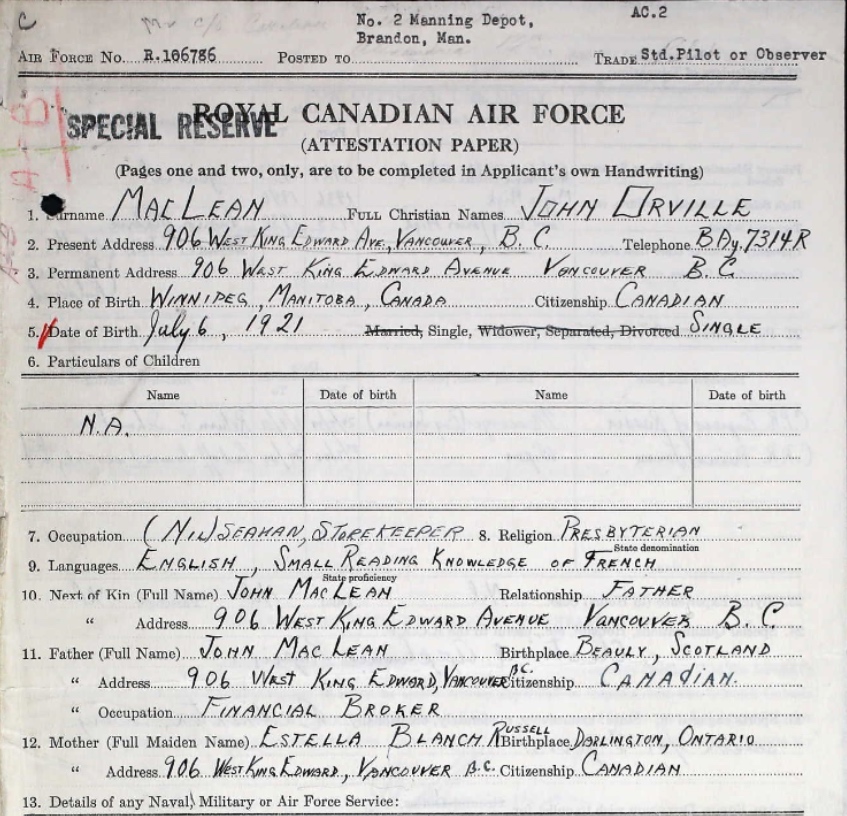 C
No. 2 Manning Depot, AC.2
Brandon, Man.
AIR FORCE No. R.106786 POSTED TO TRADE Std.Pilot or Observer
A-B
SPECIAL RESERVE
ROYAL CANADIAN AIR FORCE
(ATTESTATION PAPER)
(Pages one and two, only, are to be completed in Applicant's own Handwriting)
1. Surname MACLEAN FULL Christian Names JOHN ORVILLE
2. Present Address 906 WEST KING EDWARD AVE, VANCOUVER, B.C. Telephone BAy. 7314R
3. Permanent Address 906 WEST KING EDWARD AVENUE VANCOUVER B.C
4. Place of Birth WINNIPEG, MANITOBA, CANADA Citizenship CANADIAN
5. Date of Birth July 6, 1921 Married, Single, Widower, Separated, Divorced SINGLE
6. Particulars of Children
Name Date of birth Name Date of birth
N.A.
7. Occupation (NIL) SEAMAN, STOREKEEPER 8. Religion PRESBYTERIAN
State denomination
9. Languages ENGLISH, SMALL READING KNOWLEDGE OF FRENCH
State proficiency
10. Next of Kin (Full Name) JOHN MACLEAN Relationship FATHER
" Address 906 WEST KING EDWARD AVENUE VANCOUVER B.C.
11. Father (Full Name) JOHN MACLEAN Birthplace BEAULY, SCOTLAND
" Address 906 WEST KING EDWARD, VANCOUVER B.C. Citizenship CANADIAN.
" Occupation FINANCIAL BROKER
12. Mother (Full Maiden Name) ESTELLA BLANCH RUSSELL Birthplace DARLINGTON, ONTARIO
" Address 906 WEST KING EDWARD, VANCOUVER B.C. Citizenship CANADIAN
13. Details of any Naval, Military or Air Force Service: